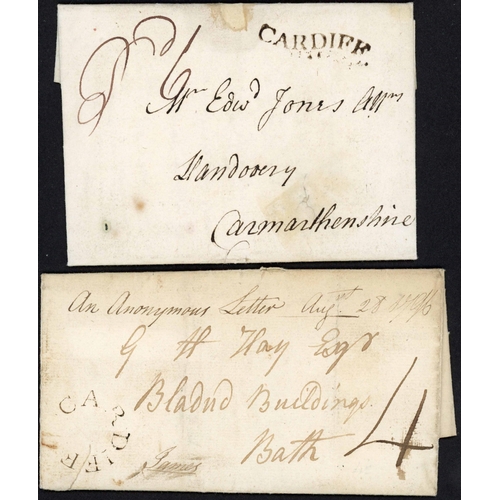 CARDIFF
Mr Edwd Jones Attny
Llandovery
Carmarthenshire
An Anonymous Letter Augst 28
G H Hay Esqr
Bladud Buildings
Bath
4
CARDIFF
James